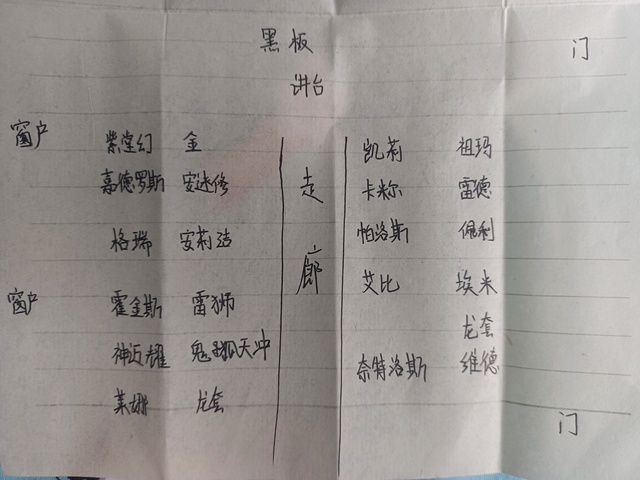 黑板 门
讲台
窗户
紫堂幻 金 凯莉 祖玛
嘉德罗斯 安迷修 走 卡米尔 雷德
格瑞 安莉洁 帕洛斯 佩利
廊
窗户 霍金斯 雷狮 艾比 埃米
龙套
神近耀 鬼狐天冲 奈特洛斯 维德
莱娜 龙套
门